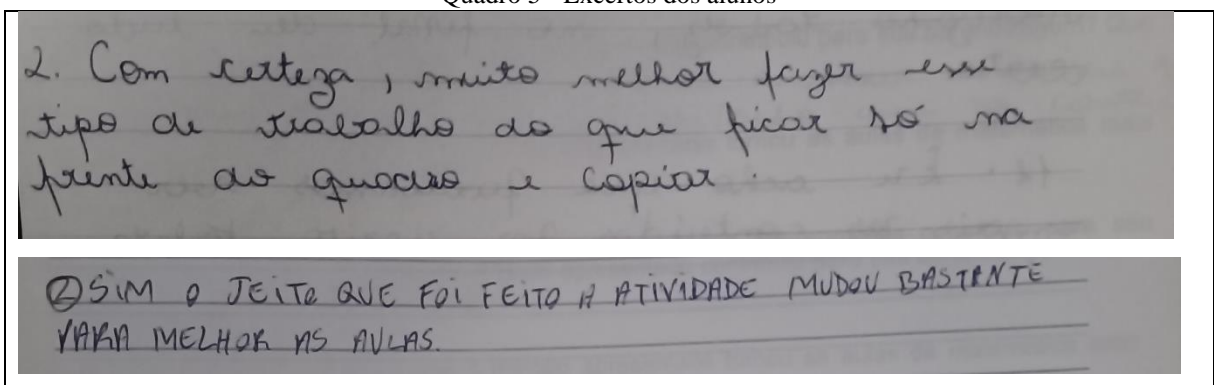 2. Com certeza, muito melhor fazer esse
tipo de trabalho do que ficar só na
frente do quadro e copiar.
② SIM O JEITO QUE FOI FEITO A ATIVIDADE MUDOU BASTANTE
PARA MELHOR AS AULAS.